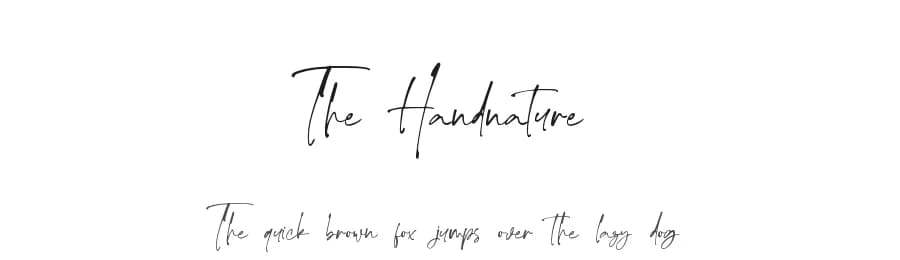 The Handnature
The quick brown fox jumps over the lazy dog